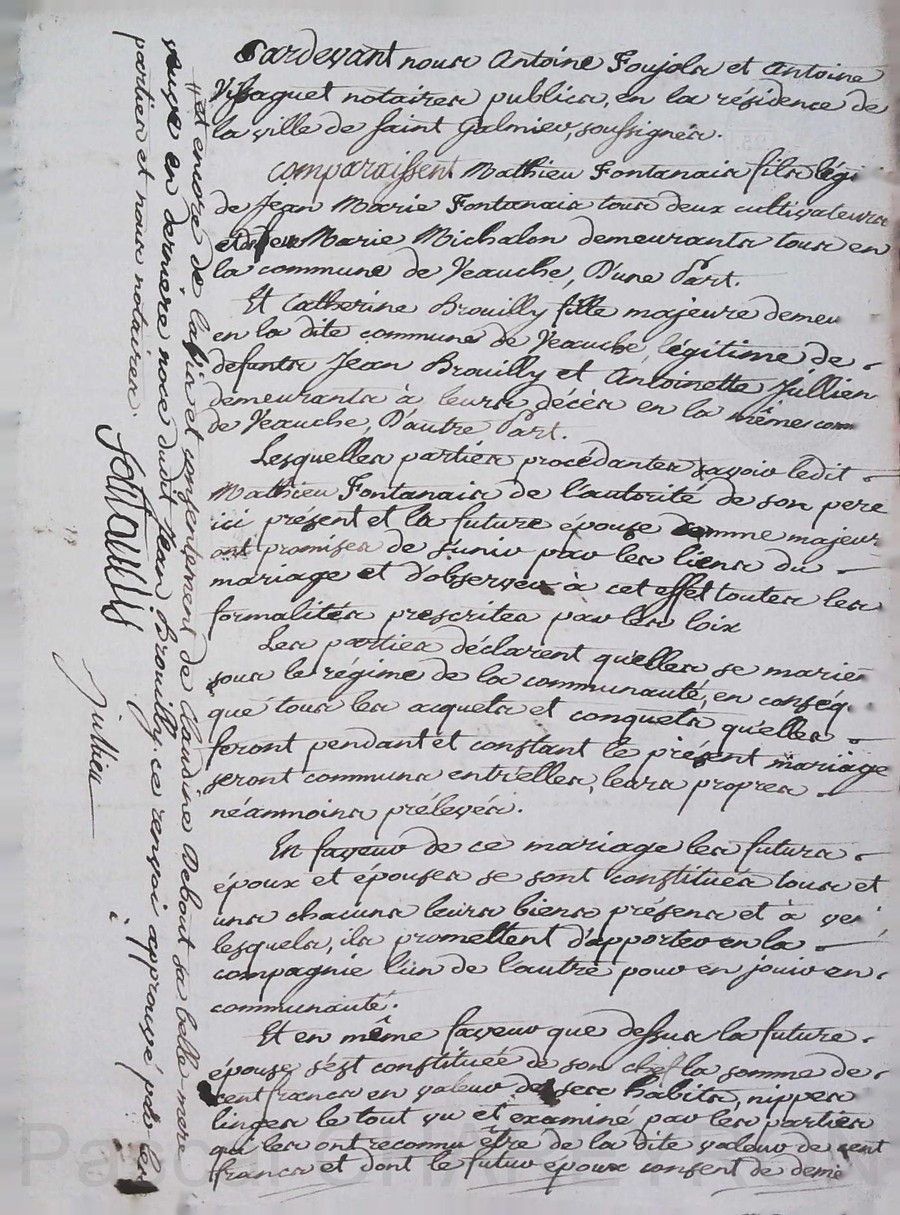 Pardevant nous Antoine Foujols et Antoine
Vissaguet notaires publics, en la résidence de
la ville de Saint Galmier, soussignés.
comparaissent Mathieu Fontanais fils légi
de Jean Marie Fontanais tous deux cultivateurs
Marie Michalon demeurants tous en
la commune de Veauche, D'une Part.
Et Catherine Brouilly fille majeure demeu
en la dite commune de Veauche, légitime de
defunts Jean Brouilly et Antoinette Jullien
demeurants à leurs décès en la même com
de Veauche, D'autre Part.
Lesquelles parties procédantes savoir ledit
Mathieu Fontanais de l'autorité de son pere
ici présent et la future épouse comme majeur
ont promises de s'unir par les liens du
mariage et d'observer à cet effet toutes les
formalités prescrites par les loix
Les parties déclarent qu'elles se marien
sous le régime de la communauté, en conséq
que tous les acquets et conquets qu'elles
feront pendant et constant le présent mariage
seront communs entr'elles, leurs propres
néammoins prélevés.
En faveur de ce mariage les futurs
époux et épouses se sont constitués tous et
uns chacuns leurs biens présens et à ven
lesquels, ils promettent d'apporter en la
compagnie l'un de l'autre pour en jouir en
communauté.
Et en même faveur que dessus la future
épouse s'est constituée de son chef la somme de
cent francs en valeur de ses habits, nippes
linges le tout vu et examiné par les parties
qui les ont reconnu être de la dite valeur de cent
francs et dont le futur époux consent de deme
# et encore de l'avis et consentement de Claudine Debout sa belle-mere
veuve en dernière noce dudit Jean Brouilly, ce renvoi approuvé par les
parties et nous notaires.
Jullien